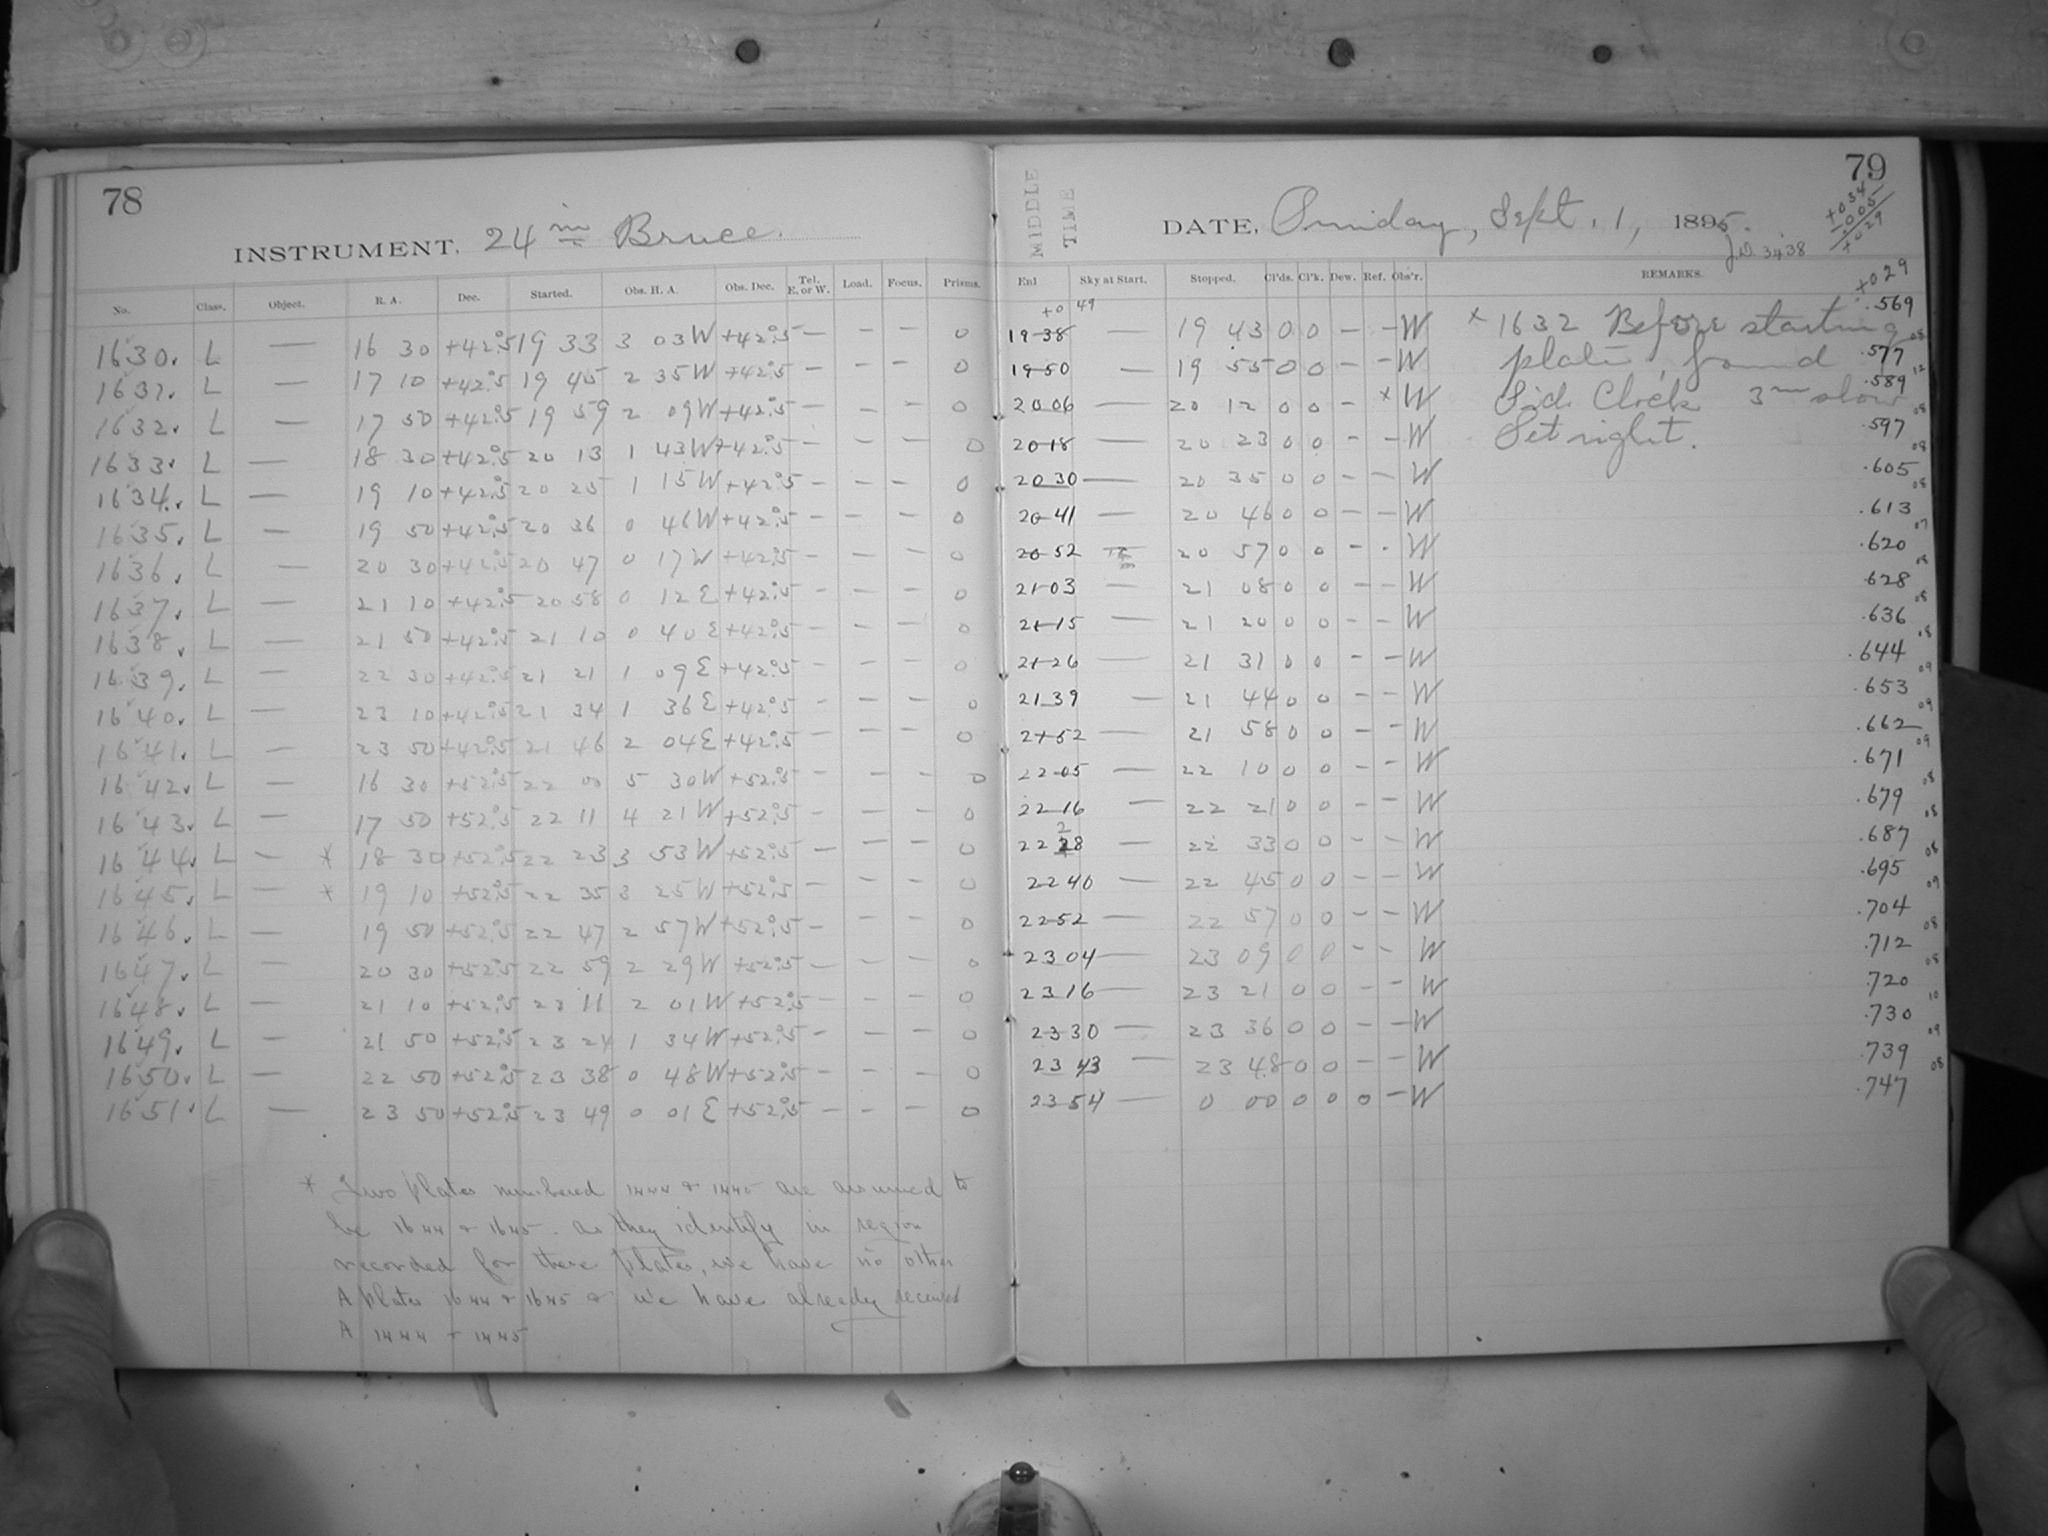 78
INSTRUMENT. 24 in Bruce.
No. Class. Object. R. A. Dec. Started. Obs. H. A. Obs. Dec. Tel. E. or W. Load. Focus. Prisms.
1630. L — 16 30 +42°.5 19 33 3 03 W +42°.5 — — — 0
1631. L — 17 10 +42°.5 19 45 2 35 W +42°.5 — — — 0
1632. L — 17 50 +42°.5 19 59 2 09 W +42°.5 — — — 0
1633. L — 18 30 +42°.5 20 13 1 43 W +42°.5 — — — 0
1634. L — 19 10 +42°.5 20 25 1 15 W +42°.5 — — — 0
1635. L — 19 50 +42°.5 20 36 0 46 W +42°.5 — — — 0
1636. L — 20 30 +42°.5 20 47 0 17 W +42°.5 — — — 0
1637. L — 21 10 +42°.5 20 58 0 12 E +42°.5 — — — 0
1638. L — 21 50 +42°.5 21 10 0 40 E +42°.5 — — — 0
1639. L — 22 30 +42°.5 21 21 1 09 E +42°.5 — — — 0
1640. L — 23 10 +42°.5 21 34 1 36 E +42°.5 — — — 0
1641. L — 23 50 +42°.5 21 46 2 04 E +42°.5 — — — 0
1642. L — 16 30 +52°.5 22 00 5 30 W +52°.5 — — — 0
1643. L — 17 50 +52°.5 22 11 4 21 W +52°.5 — — — 0
1644. L — * 18 30 +52°.5 22 23 3 53 W +52°.5 — — — 0
1645. L — * 19 10 +52°.5 22 35 3 25 W +52°.5 — — — 0
1646. L — 19 50 +52°.5 22 47 2 57 W +52°.5 — — — 0
1647. L — 20 30 +52°.5 22 59 2 29 W +52°.5 — — — 0
1648. L — 21 10 +52°.5 23 11 2 01 W +52°.5 — — — 0
1649. L — 21 50 +52°.5 23 24 1 34 W +52°.5 — — — 0
1650. L — 22 50 +52°.5 23 38 0 48 W +52°.5 — — — 0
1651. L — 23 50 +52°.5 23 49 0 01 E +52°.5 — — — 0
* Two plates numbered 1444 & 1445 are assumed to
be 1644 & 1645. as they identify in region
recorded for these plates, we have no other
A plates 1644 & 1645 & we have already received
A 1444 + 1445
79
MIDDLE TIME
DATE, Sept. 1, 1895.
J.D. 3438
+034
.005
+029
Enl Sky at Start. Stopped. Cl'ds. Cl'k. Dew. Ref. Obs'r. REMARKS.
+0 49
+029
19 38 — 19 43 0 0 — — W * 1632 Before starting .569
08
19 50 — 19 55 0 0 — — W plate, found .577
12
20 06 — 20 12 0 0 — * W Sid. Clock 3m slow .589
08
20 18 — 20 23 0 0 — — W Set right. .597
08
20 30 — 20 35 0 0 — — W .605
08
20 41 — 20 46 0 0 — — W .613
07
20 52 20 57 0 0 — — W .620
08
21 03 — 21 08 0 0 — — W .628
08
21 15 — 21 20 0 0 — — W .636
08
21 26 — 21 31 0 0 — — W .644
09
21 39 — 21 44 0 0 — — W .653
09
21 52 — 21 58 0 0 — — W .662
09
22 05 — 22 10 0 0 — — W .671
08
22 16 — 22 21 0 0 — — W .679
08
22 28 — 22 33 0 0 — — W .687
08
22 40 — 22 45 0 0 — — W .695
09
22 52 — 22 57 0 0 — — W .704
08
23 04 — 23 09 0 0 — — W .712
08
23 16 — 23 21 0 0 — — W .720
10
23 30 — 23 36 0 0 — — W .730
09
23 43 — 23 48 0 0 — — W .739
08
23 54 — 0 00 0 0 0 — W .747